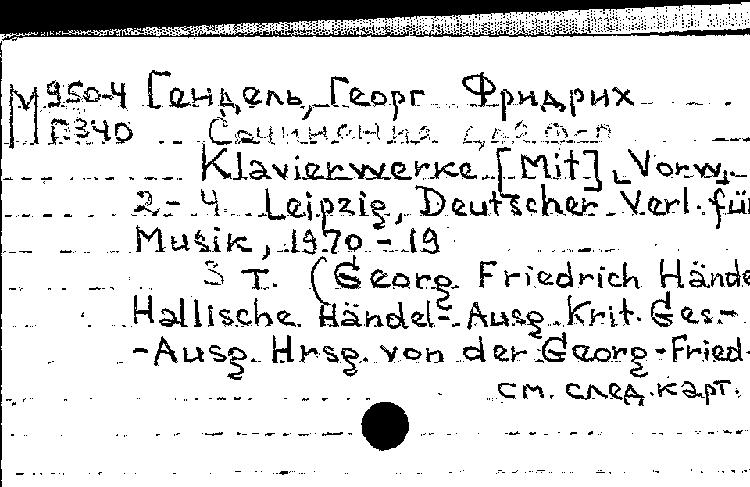 М 950-4 Гендель, Георг Фридрих
П340 Сочинения для ф-п
Klavierwerke [Mit] Vorw.
2-4 Leipzig, Deutscher Verl. für
Musik, 1970-19
3 т. (Georg Friedrich Hände
Hallische Händel-Ausg. Krit. Ges.-
-Ausg. Hrsg. von der Georg-Fried-
см. след. карт.